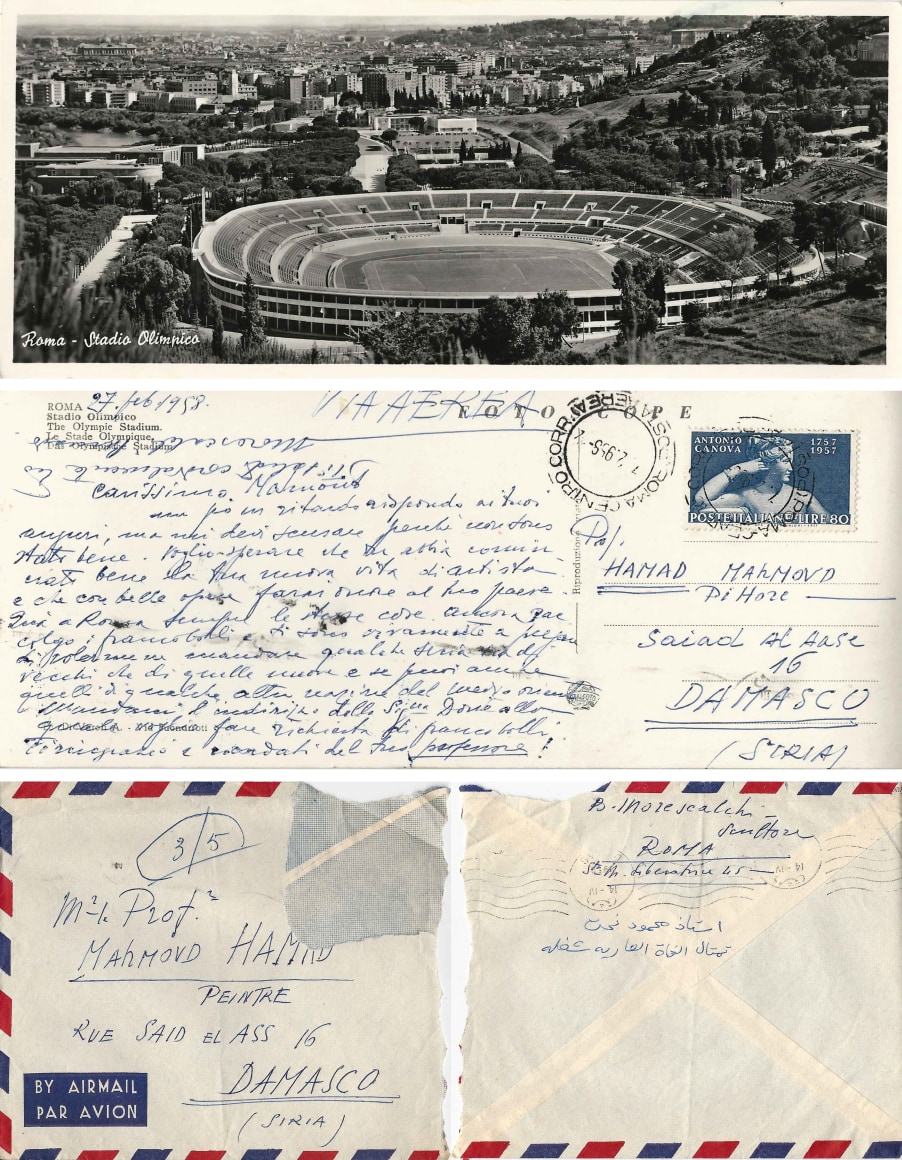 Roma - Stadio Olimpico
ROMA
Stadio Olimpico
The Olympic Stadium.
Le Stade Olympique.
Das Olympische Stadium
27 feb 1958.
VIA AEREA
FOTOSCOPE
Carissimo Mahmoud
un po' in ritardo rispondo ai tuoi
auguri, ma mi devi scusare perché non sono
stato bene. Voglio sperare che tu abbia comin
ciato bene la tua nuova vita di artista
e che con belle opere farai onore al tuo paese.
Qui a Roma sempre le stesse cose. ancora rac
colgo i francobolli e ti sono
mandare qualche serie sia di
vecchi che di quelle nuove e se puoi anche
quelli di qualche altra nazione del medio oriente
mandami l'indirizzo della Sig.na
voglio fare richiesta di francobolli
Ti ringrazio e ricordati del tuo professore!
Moreschalchi
ROMA CENTRO CORR.
ANTONIO CANOVA
1757
1957
POSTE ITALIANE LIRE 80
Prof.
HAMAD MAHMOVD
Pittore
Saiad Al Aase
16
DAMASCO
(SIRIA)
3/5
Prof.
MAHMOVD HAMAD
PEINTRE
RUE SAID EL ASS 16
DAMASCO
(SIRIA)
BY AIRMAIL
PAR AVION
B. Morescalchi
Scultore
ROMA
Sta M. Liberatrice 45
14-IV
استاذ محمود نحت
تمثال الفتاة العارية